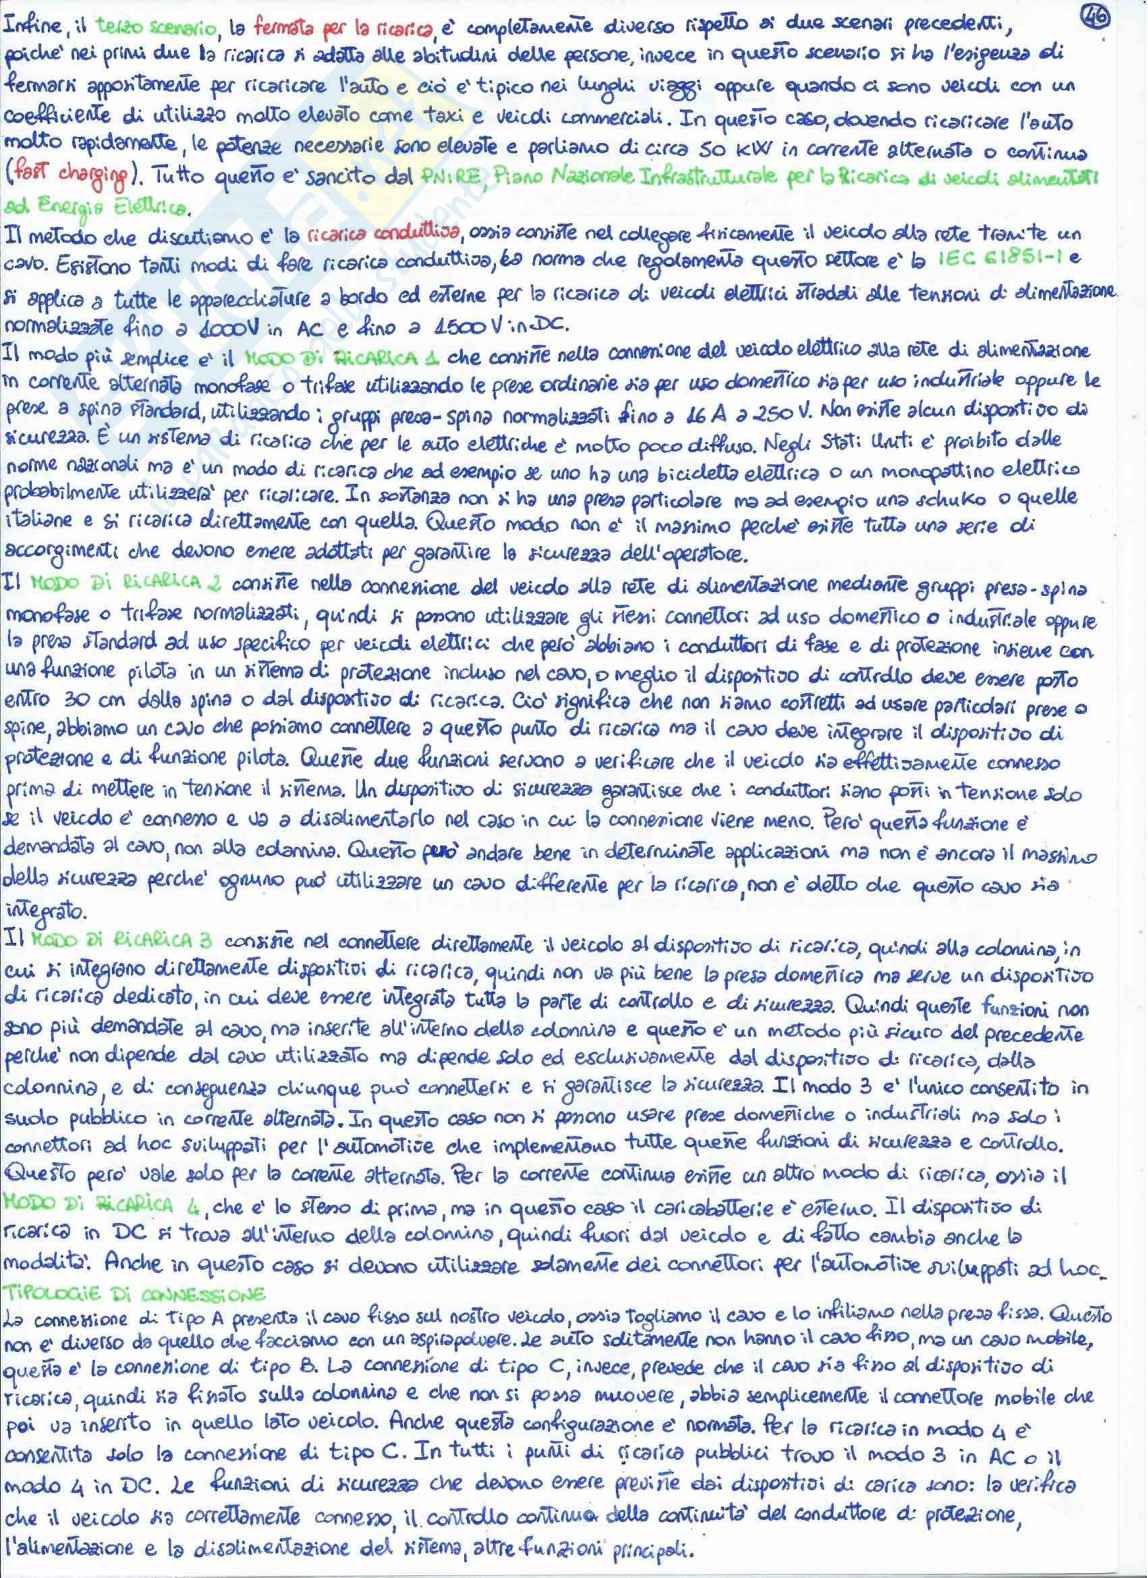 46
Infine, il terzo scenario, la fermata per la ricarica, è completamente diverso rispetto ai due scenari precedenti,
poiché nei primi due la ricarica si adatta alle abitudini delle persone, invece in questo scenario si ha l'esigenza di
fermarsi appositamente per ricaricare l'auto e ciò è tipico nei lunghi viaggi oppure quando ci sono veicoli con un
coefficiente di utilizzo molto elevato come taxi e veicoli commerciali. In questo caso, dovendo ricaricare l'auto
molto rapidamente, le potenze necessarie sono elevate e parliamo di circa 50 kW in corrente alternata o continua
(fast charging). Tutto questo è sancito dal PNIRE, Piano Nazionale Infrastrutturale per la Ricarica di veicoli alimentati
ad Energia Elettrica.
Il metodo che discutiamo è la ricarica conduttiva, ossia consiste nel collegare fisicamente il veicolo alla rete tramite un
cavo. Esistono tanti modi di fare ricarica conduttiva, la norma che regolamenta questo settore è la IEC 61851-1 e
si applica a tutte le apparecchiature a bordo ed esterne per la ricarica di veicoli elettrici stradali alle tensioni di alimentazione
normalizzate fino a 1000V in AC e fino a 1500V in DC.
Il modo più semplice è il MODO DI RICARICA 1 che consiste nella connessione del veicolo elettrico alla rete di alimentazione
in corrente alternata monofase o trifase utilizzando le prese ordinarie sia per uso domestico sia per uso industriale oppure le
prese a spina standard, utilizzando i gruppi presa-spina normalizzati fino a 16 A a 250 V. Non esiste alcun dispositivo di
sicurezza. È un sistema di ricarica che per le auto elettriche è molto poco diffuso. Negli Stati Uniti è proibito dalle
norme nazionali ma è un modo di ricarica che ad esempio se uno ha una bicicletta elettrica o un monopattino elettrico
probabilmente utilizzerà per ricaricare. In sostanza non si ha una presa particolare ma ad esempio una schuko o quelle
italiane e si ricarica direttamente con quella. Questo modo non è il massimo perché esiste tutta una serie di
accorgimenti che devono essere adottati per garantire la sicurezza dell'operatore.
Il MODO DI RICARICA 2 consiste nella connessione del veicolo alla rete di alimentazione mediante gruppi presa-spina
monofase o trifase normalizzati, quindi si possono utilizzare gli stessi connettori ad uso domestico o industriale oppure
la presa standard ad uso specifico per veicoli elettrici che però abbiano i conduttori di fase e di protezione insieme con
una funzione pilota in un sistema di protezione incluso nel cavo, o meglio il dispositivo di controllo deve essere posto
entro 30 cm dalla spina o dal dispositivo di ricarica. Ciò significa che non siamo costretti ad usare particolari prese o
spine, abbiamo un cavo che possiamo connettere a questo punto di ricarica ma il cavo deve integrare il dispositivo di
protezione e di funzione pilota. Queste due funzioni servono a verificare che il veicolo sia effettivamente connesso
prima di mettere in tensione il sistema. Un dispositivo di sicurezza garantisce che i conduttori siano posti in tensione solo
se il veicolo è connesso e va a disalimentarlo nel caso in cui la connessione viene meno. Però questa funzione è
demandata al cavo, non alla colonnina. Questo può andare bene in determinate applicazioni ma non è ancora il massimo
della sicurezza perché ognuno può utilizzare un cavo differente per la ricarica, non è detto che questo cavo sia
integrato.
Il MODO DI RICARICA 3 consiste nel connettere direttamente il veicolo al dispositivo di ricarica, quindi alla colonnina, in
cui si integrano direttamente dispositivi di ricarica, quindi non va più bene la presa domestica ma serve un dispositivo
di ricarica dedicato, in cui deve essere integrata tutta la parte di controllo e di sicurezza. Quindi queste funzioni non
sono più demandate al cavo, ma inserite all'interno della colonnina e questo è un metodo più sicuro del precedente
perché non dipende dal cavo utilizzato ma dipende solo ed esclusivamente dal dispositivo di ricarica, dalla
colonnina, e di conseguenza chiunque può connettersi e si garantisce la sicurezza. Il modo 3 è l'unico consentito in
suolo pubblico in corrente alternata. In questo caso non si possono usare prese domestiche o industriali ma solo i
connettori ad hoc sviluppati per l'automotive che implementano tutte queste funzioni di sicurezza e controllo.
Questo però vale solo per la corrente alternata. Per la corrente continua esiste un altro modo di ricarica, ossia il
MODO DI RICARICA 4, che è lo stesso di prima, ma in questo caso il caricabatterie è esterno. Il dispositivo di
ricarica in DC si trova all'interno della colonnina, quindi fuori dal veicolo e di fatto cambia anche la
modalità. Anche in questo caso si devono utilizzare solamente dei connettori per l'automotive sviluppati ad hoc.
TIPOLOGIE DI CONNESSIONE
La connessione di tipo A presenta il cavo fisso sul nostro veicolo, ossia togliamo il cavo e lo infiliamo nella presa fissa. Questo
non è diverso da quello che facciamo con un aspirapolvere. Le auto solitamente non hanno il cavo fisso, ma un cavo mobile,
questa è la connessione di tipo B. La connessione di tipo C, invece, prevede che il cavo sia fisso al dispositivo di
ricarica, quindi sia fissato sulla colonnina e che non si possa muovere, abbia semplicemente il connettore mobile che
poi va inserito in quello lato veicolo. Anche questa configurazione è normata. Per la ricarica in modo 4 è
consentita solo la connessione di tipo C. In tutti i punti di ricarica pubblici trovo il modo 3 in AC o il
modo 4 in DC. Le funzioni di sicurezza che devono essere previste dai dispositivi di carica sono: la verifica
che il veicolo sia correttamente connesso, il controllo continuo della continuità del conduttore di protezione,
l'alimentazione e la disalimentazione del sistema, altre funzioni principali.